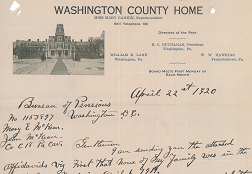 WASHINGTON COUNTY HOME
MISS MARY RANKIN, Superintendent
Bell Telephone 102
Directors of the Poor
R. C. BUCHANAN, President
Washington, Pa.
WILLIAM H. LANE
Washington, Pa.
W. W. HAWKINS
Fredericktown, Pa.
BOARD MEETS FIRST MONDAY OF
EACH MONTH
April 22nd 1920
Bureau of Pensions
Washington D.C.
No 1157997
Mary E McKear,
John McKear,
Co C 18 Pa Cav.
Gentlemen
I am sending you the attached
Affidavits
First that none of Family was in the